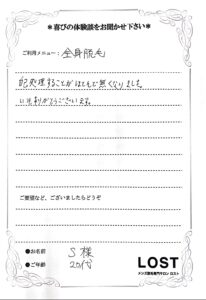 ＊喜びの体験談をお聞かせ下さい＊
ご利用メニュー：全身脱毛
自己処理することがほとんど無くなりました。
いつもありがとうございます。
ご要望など、ございましたらどうぞ
●お名前 S 様
●ご年齢 20代
LOST
メンズ脱毛専門サロン ロスト